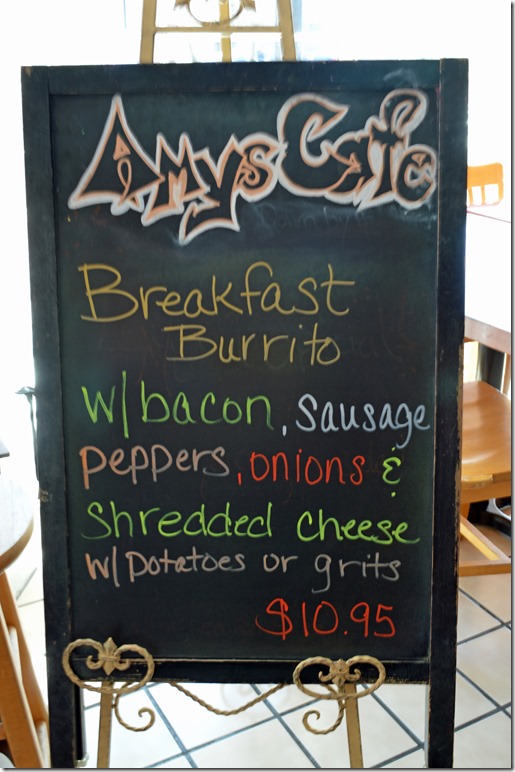 Amys Cafe
Breakfast
Burrito
w/bacon, sausage
peppers, onions &
shredded cheese
w/potatoes or grits
$10.95